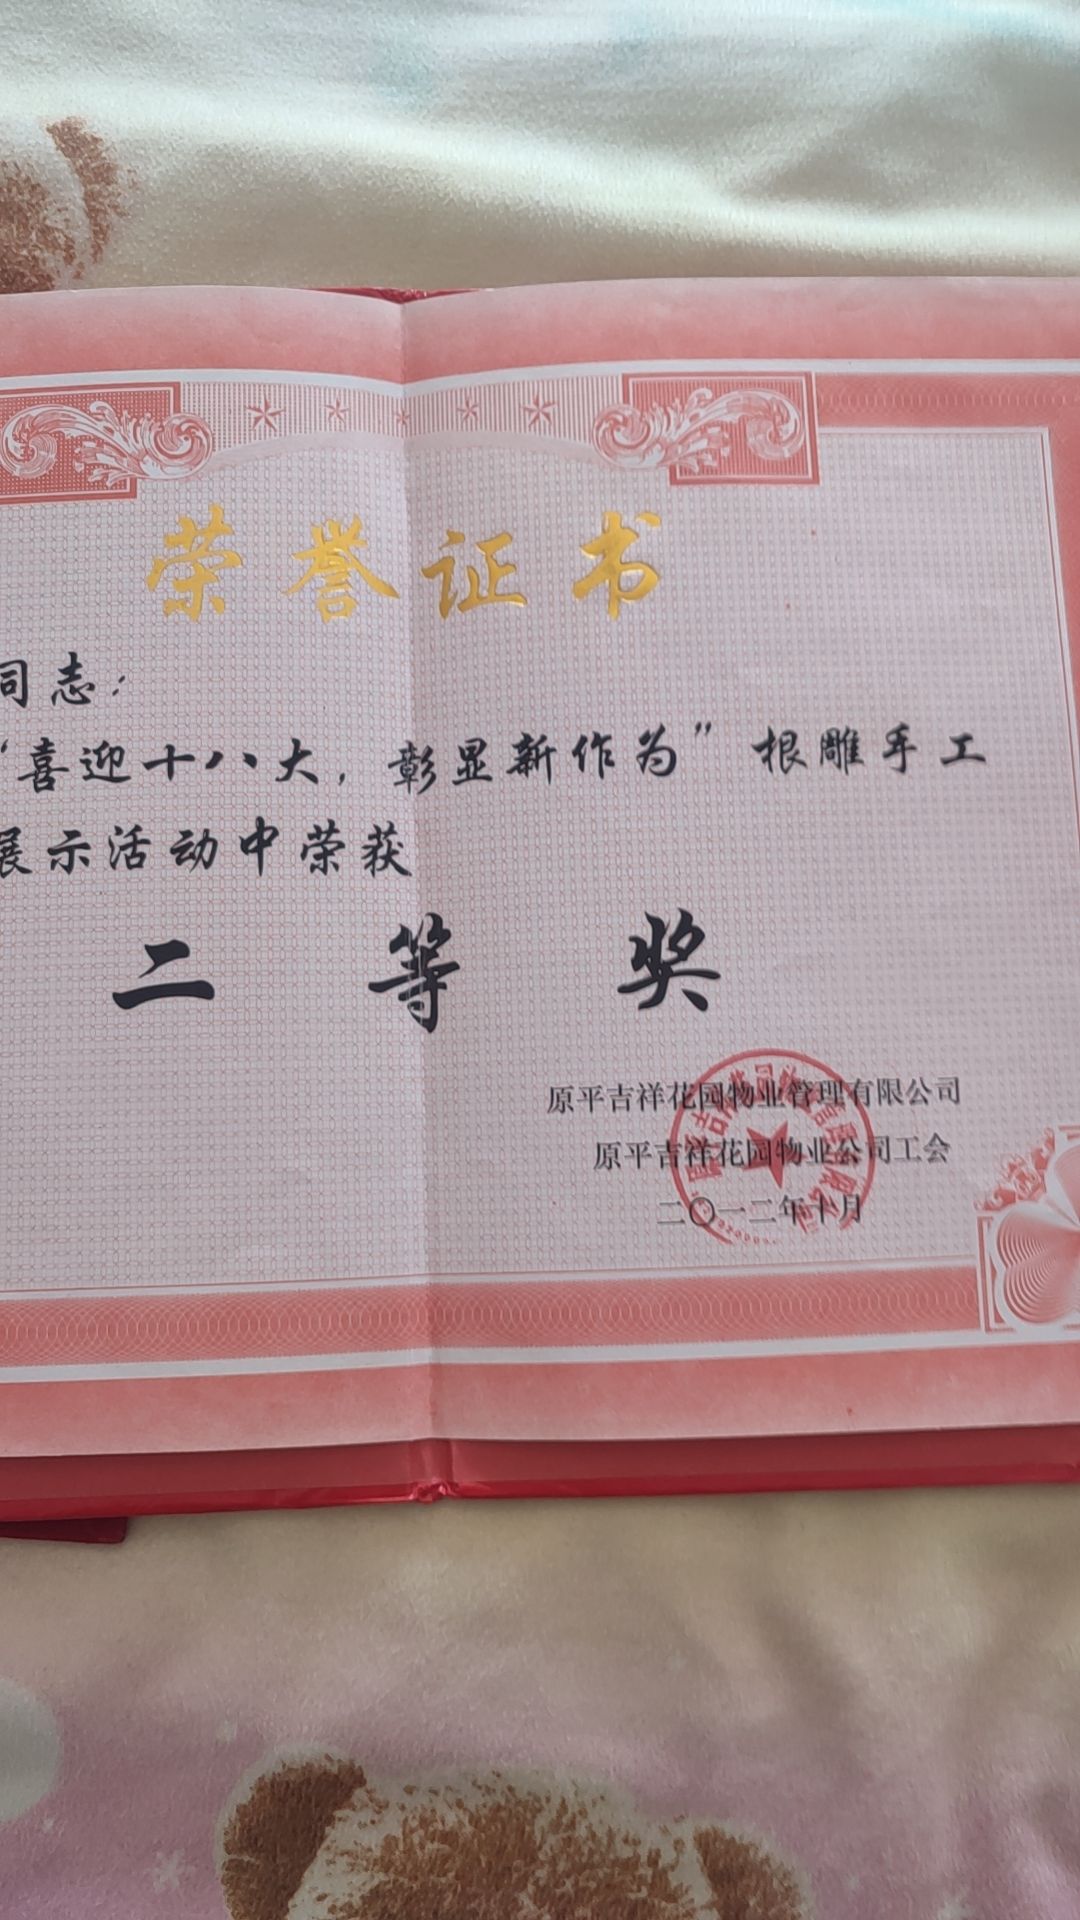 荣誉证书
同志：
“喜迎十八大，彰显新作为”根雕手工
展示活动中荣获
二等奖
原平吉祥花园物业管理有限公司
原平吉祥花园物业公司工会
二〇一二年十月